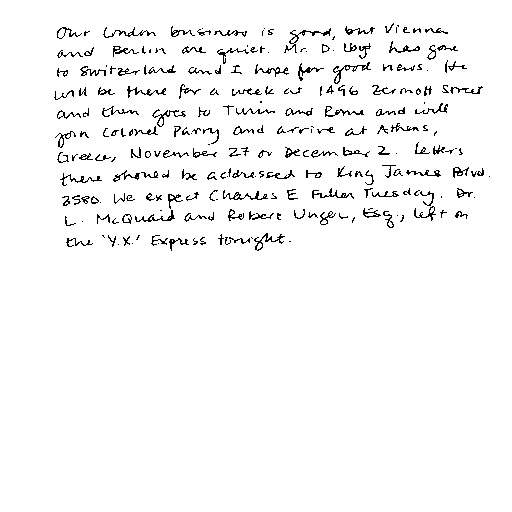 Our London business is good, but Vienna
and Berlin are quiet. Mr. D. Lloyd has gone
to Switzerland and I hope for good news. He
will be there for a week at 1496 Zermott Street
and then goes to Turin and Rome and will
join Colonel Parry and arrive at Athens,
Greece, November 27 or December 2. Letters
there should be addressed to King James Blvd.
3580. We expect Charles E Fuller Tuesday. Dr.
L. McQuaid and Robert Unger, Esq., left on
the 'Y.X.' Express tonight.